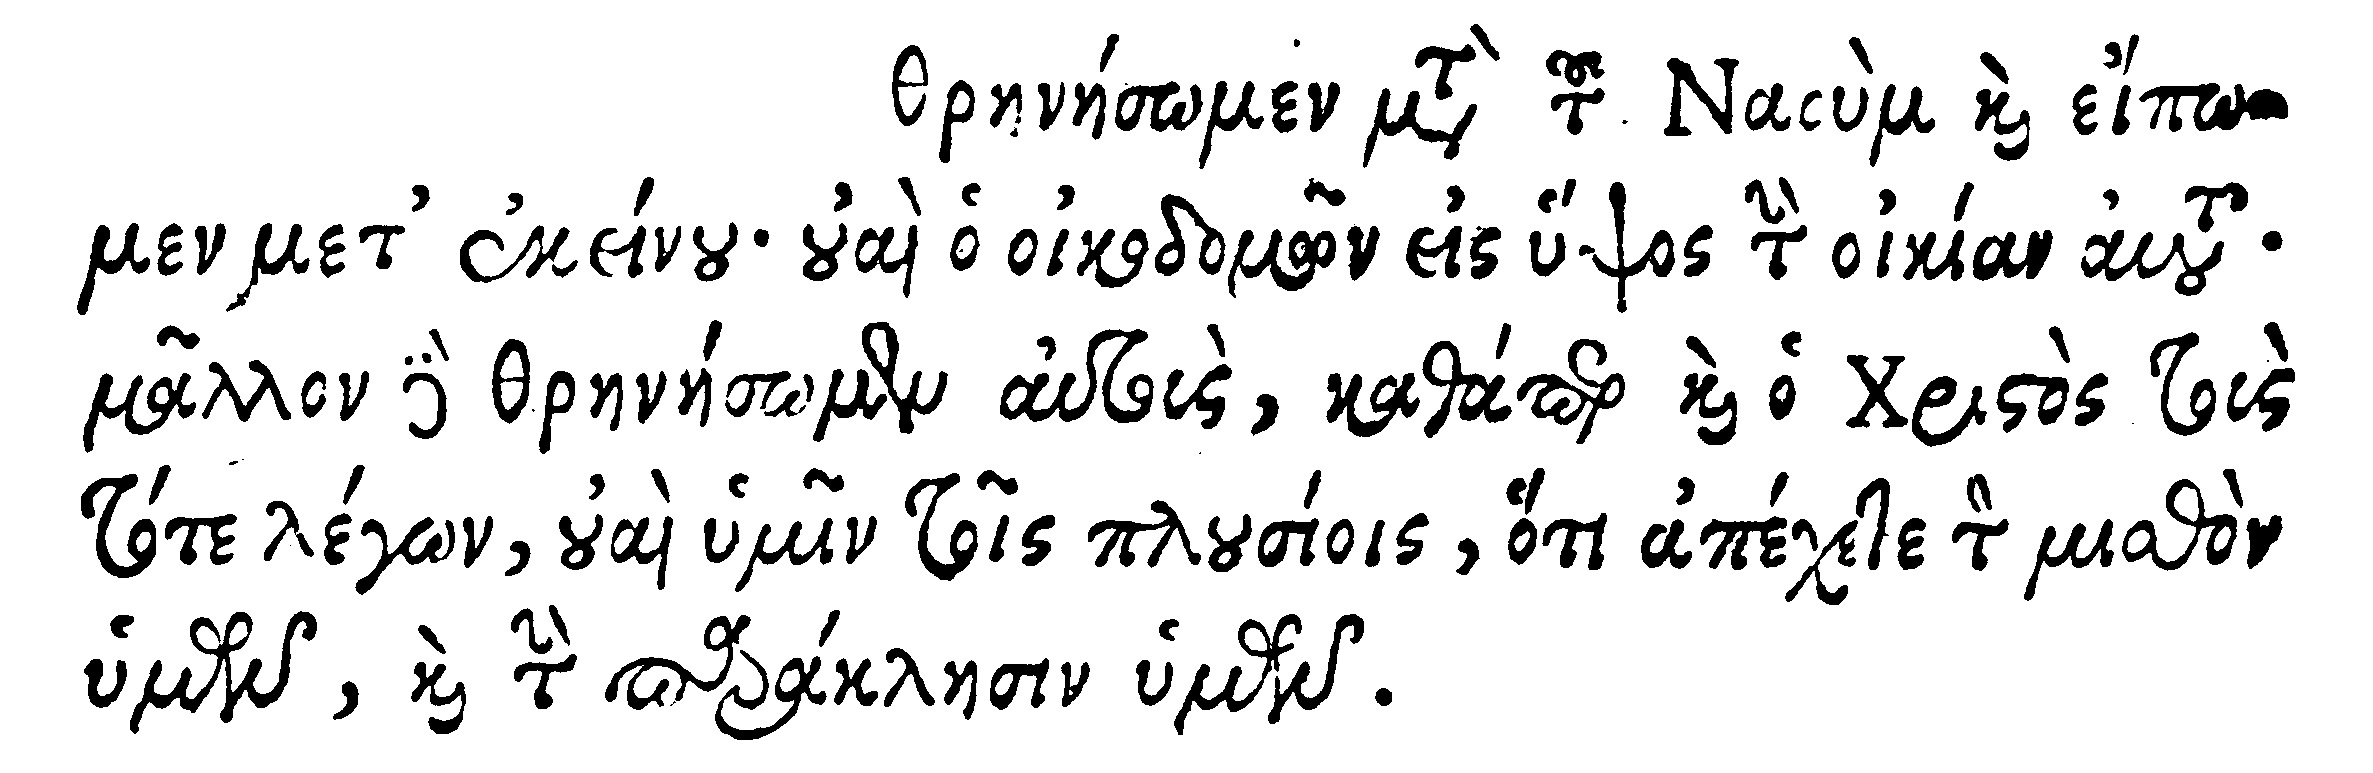 θρηνήσωμεν μετὰ τοῦ Ναοὺμ καὶ εἴπω-
μεν μετ' ἐκείνου· οὐαὶ ὁ οἰκοδομῶν εἰς ὕψος τὴν οἰκίαν αὐτοῦ.
μᾶλλον δὲ θρηνήσωμεν αὐτοὺς, καθάπερ καὶ ὁ Χριστὸς τοὺς
τότε λέγων, οὐαὶ ὑμῖν τοῖς πλουσίοις, ὅτι ἀπέχετε τὸν μισθὸν
ὑμῶν, καὶ τὴν παράκλησιν ὑμῶν.